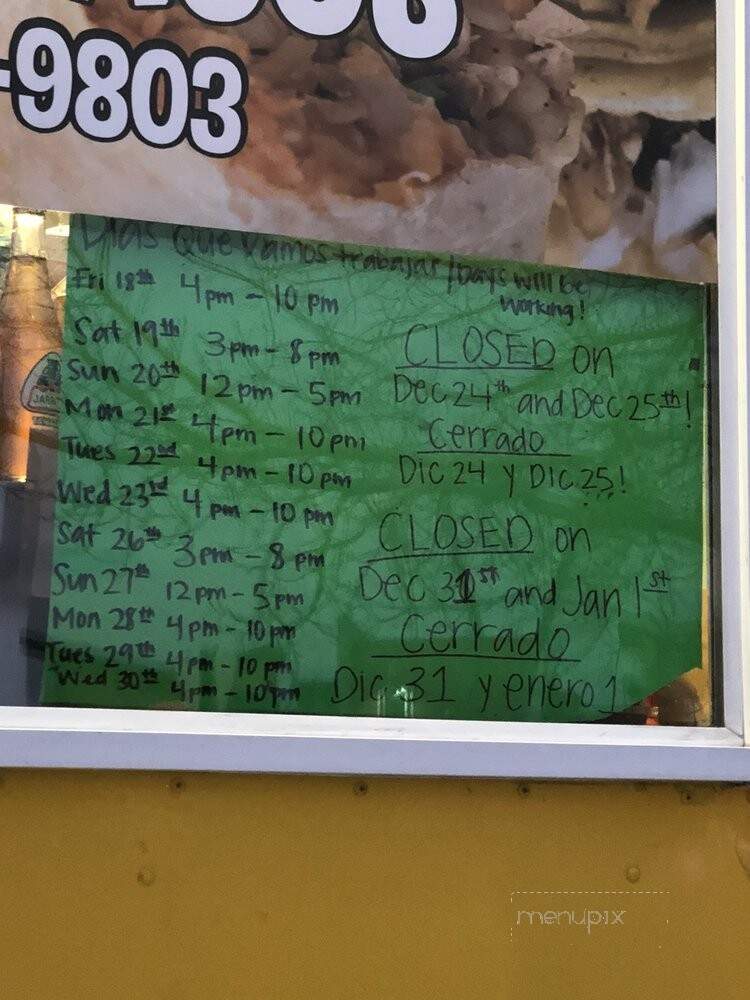 -9803
Dias que vamos trabajar/Days will be
working!
Fri 18th 4pm - 10 pm
Sat 19th 3pm - 8 pm
Sun 20th 12pm - 5pm
Mon 21st 4pm - 10pm
Tues 22nd 4pm - 10pm
Wed 23rd 4pm - 10pm
Sat 26th 3pm - 8 pm
Sun 27th 12pm - 5pm
Mon 28th 4pm - 10pm
Tues 29th 4pm - 10pm
Wed 30th 4pm - 10pm
CLOSED on
Dec 24th and Dec 25th!
Cerrado
Dic 24 y Dic 25!
CLOSED on
Dec 31st and Jan 1st
Cerrado
Dic 31 y enero 1
menupix